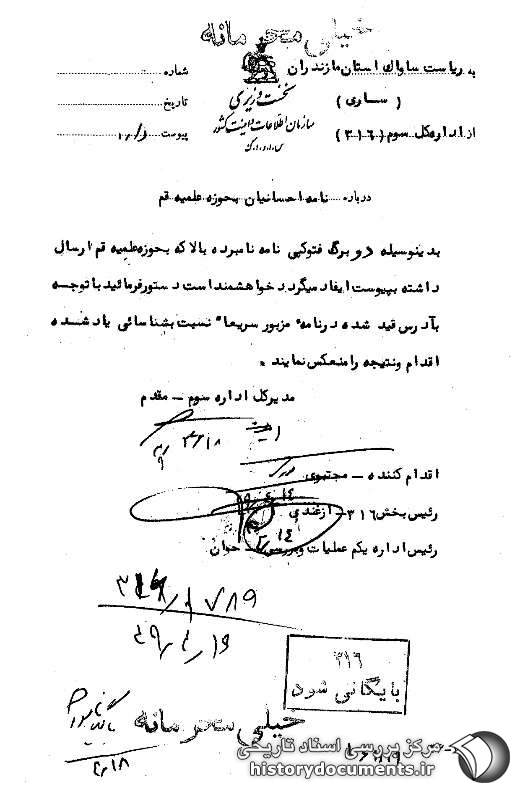 خیلی محرمانه
به ریاست ساواک استان مازندران
( ساری )
از اداره کل سوم ( ۳۱۶ )
نخست وزیری
سازمان اطلاعات و امنیت کشور
س.ا.و.ا.ک
شماره
تاریخ
پیوست
درباره نامه احسانیان بحوزه علمیه قم
بدینوسیله دو برگ فتوکپی نامه نامبرده بالا که بحوزه علمیه قم ارسال
داشته بپیوست ایفاد میگردد خواهشمند است دستور فرمائید با توجه
بآدرس قید شده در نامه مزبور سریعا" نسبت بشناسائی یاد شده
اقدام و نتیجه را منعکس نمایند .
مدیر کل اداره سوم – مقدم
اقدام کننده – مجتبوی
رئیس بخش ۳۱۶ – ازغندی
رئیس اداره یکم عملیات و بررسی – جوان
۳۱۶/۱۷۸۹
۴۹/۴/۱۶
۳۱۶
بایگانی شود
خیلی محرمانه
مرکز بررسی اسناد تاریخی
historydocuments.ir